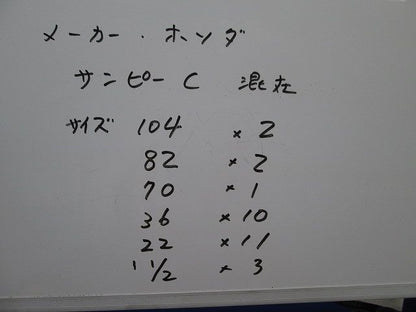 メーカー・ホンダ
サンピーC 混在
サイズ 104 × 2
82 × 2
70 × 1
36 × 10
22 × 11
11/2 × 3